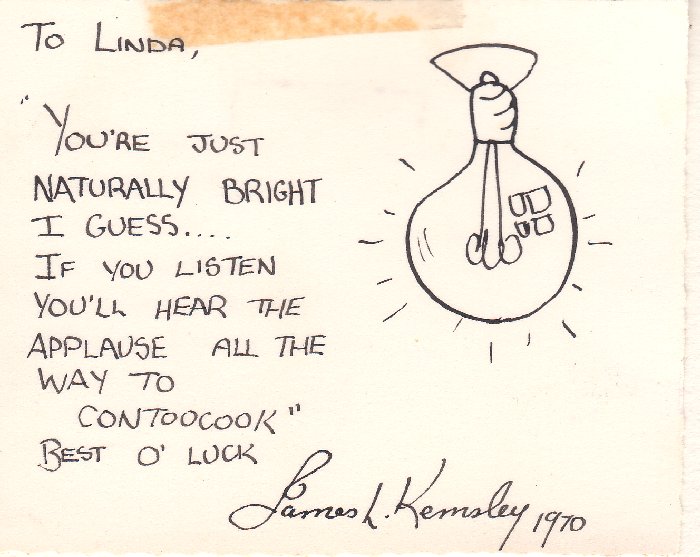 To Linda,
"You're just
naturally bright
I guess....
If you listen
you'll hear the
applause all the
way to
Contoocook"
Best o' luck
James L. Kemsley 1970